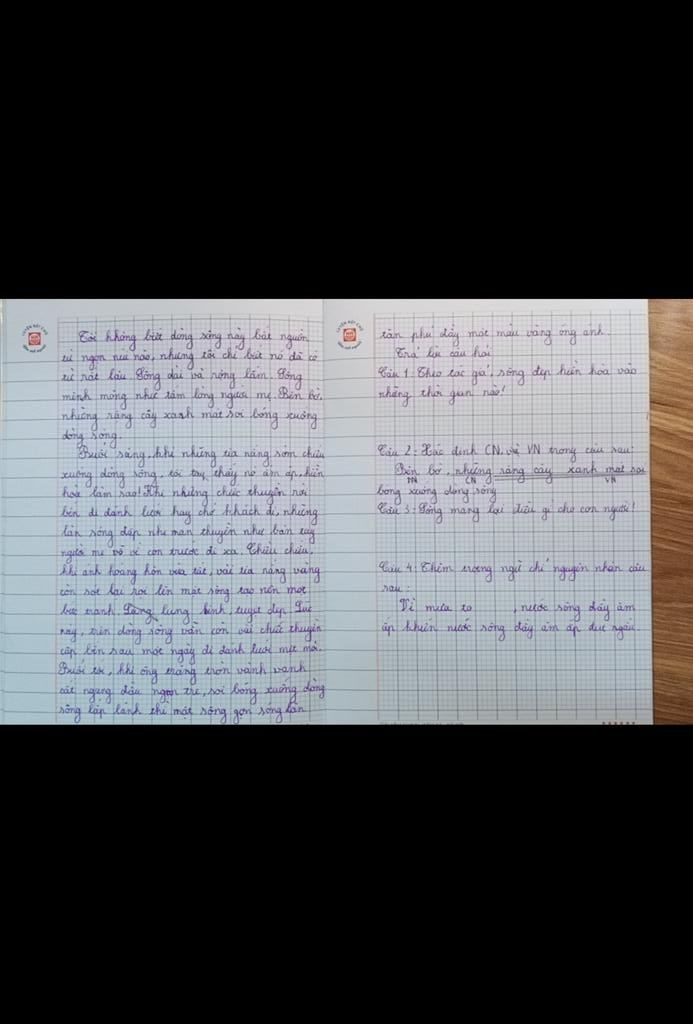 LUYỆN NÉT CHỮ
Tôi không biết dòng sông này bắt nguồn
từ ngọn núi nào, nhưng tôi chỉ biết nó đã có
từ rất lâu. Sông dài và rộng lắm. Sông
mênh mông như tấm lòng người mẹ. Bên bờ,
những rặng cây xanh mát soi bóng xuống
dòng sông.
Buổi sáng, khi những tia nắng sớm chiếu
xuống dòng sông, tôi thấy nó ấm áp, hiền
hòa làm sao! Khi những chiếc thuyền rời
bến đi đánh lưới hay chở khách đi, những
làn sóng đập nhẹ mạn thuyền như bàn tay
người mẹ vỗ về con trước đi xa. Chiều chiều,
khi ánh hoàng hôn vừa tắt, vài tia nắng vàng
còn sót lại rơi lên mặt sông tạo nên một
bức tranh lung linh, tuyệt đẹp. Lúc
này, trên dòng sông vẫn còn vài chiếc thuyền
cập bến sau một ngày đi đánh lưới mệt mỏi.
Buổi tối, khi ông trăng tròn vành vạnh
cất ngang đầu ngọn tre, soi bóng xuống dòng
sông lấp lánh thì mặt sông gợn sóng lăn
LUYỆN NÉT CHỮ
tăn phủ đầy một màu vàng óng ánh.
Trả lời câu hỏi
Câu 1: Theo tác giả, sông đẹp hiền hòa vào
những thời gian nào?
Câu 2: Xác định CN và VN trong câu sau:
Bên bờ, những rặng cây xanh mát soi
TN CN VN
bóng xuống dòng sông
Câu 3: Sông mang lại điều gì cho con người?
Câu 4: Thêm trạng ngữ chỉ nguyên nhân câu
sau:
Vì mưa to , nước sông đầy ấm
áp khiến nước sông đầy ấm áp đục ngầu.